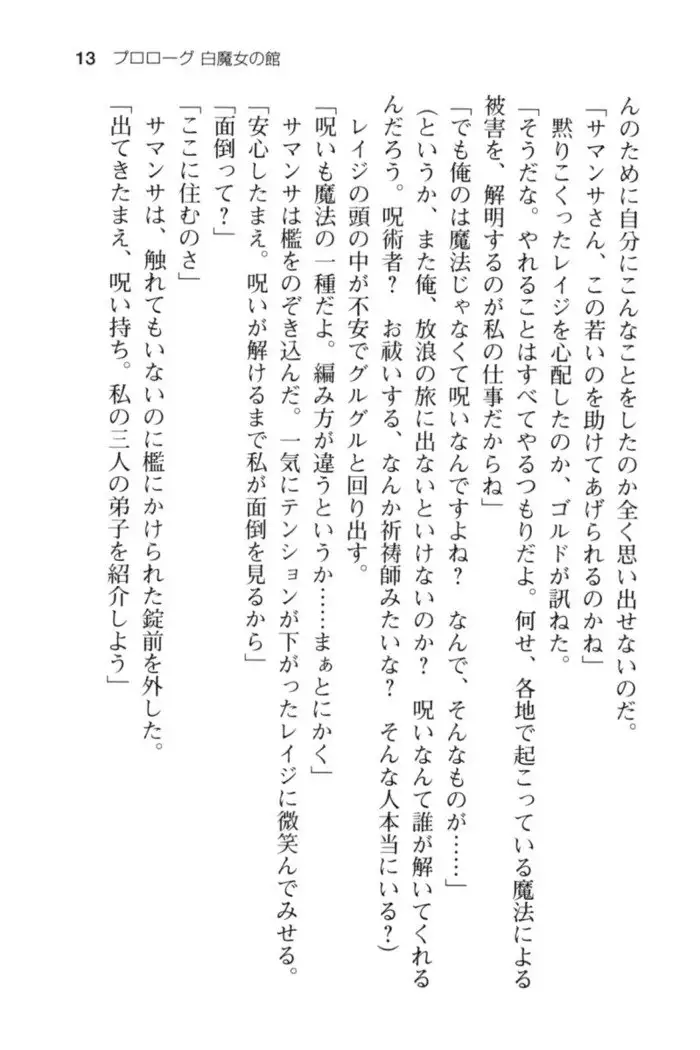 13　プロローグ 白魔女の館
んのために自分にこんなことをしたのか全く思い出せないのだ。
「サマンサさん、この若いのを助けてあげられるのかね」
黙りこくったレイジを心配したのか、ゴルドが訊ねた。
「そうだな。やれることはすべてやるつもりだよ。何せ、各地で起こっている魔法による
被害を、解明するのが私の仕事だからね」
「でも俺のは魔法じゃなくて呪いなんですよね？　なんで、そんなものが……」
（というか、また俺、放浪の旅に出ないといけないのか？　呪いなんて誰が解いてくれる
んだろう。呪術者？　お祓いする、なんか祈祷師みたいな？　そんな人本当にいる？）
レイジの頭の中が不安でグルグルと回り出す。
「呪いも魔法の一種だよ。編み方が違うというか……まぁとにかく」
サマンサは檻をのぞき込んだ。一気にテンションが下がったレイジに微笑んでみせる。
「安心したまえ。呪いが解けるまで私が面倒を見るから」
「面倒って？」
「ここに住むのさ」
サマンサは、触れてもいないのに檻にかけられた錠前を外した。
「出てきたまえ、呪い持ち。私の三人の弟子を紹介しよう」